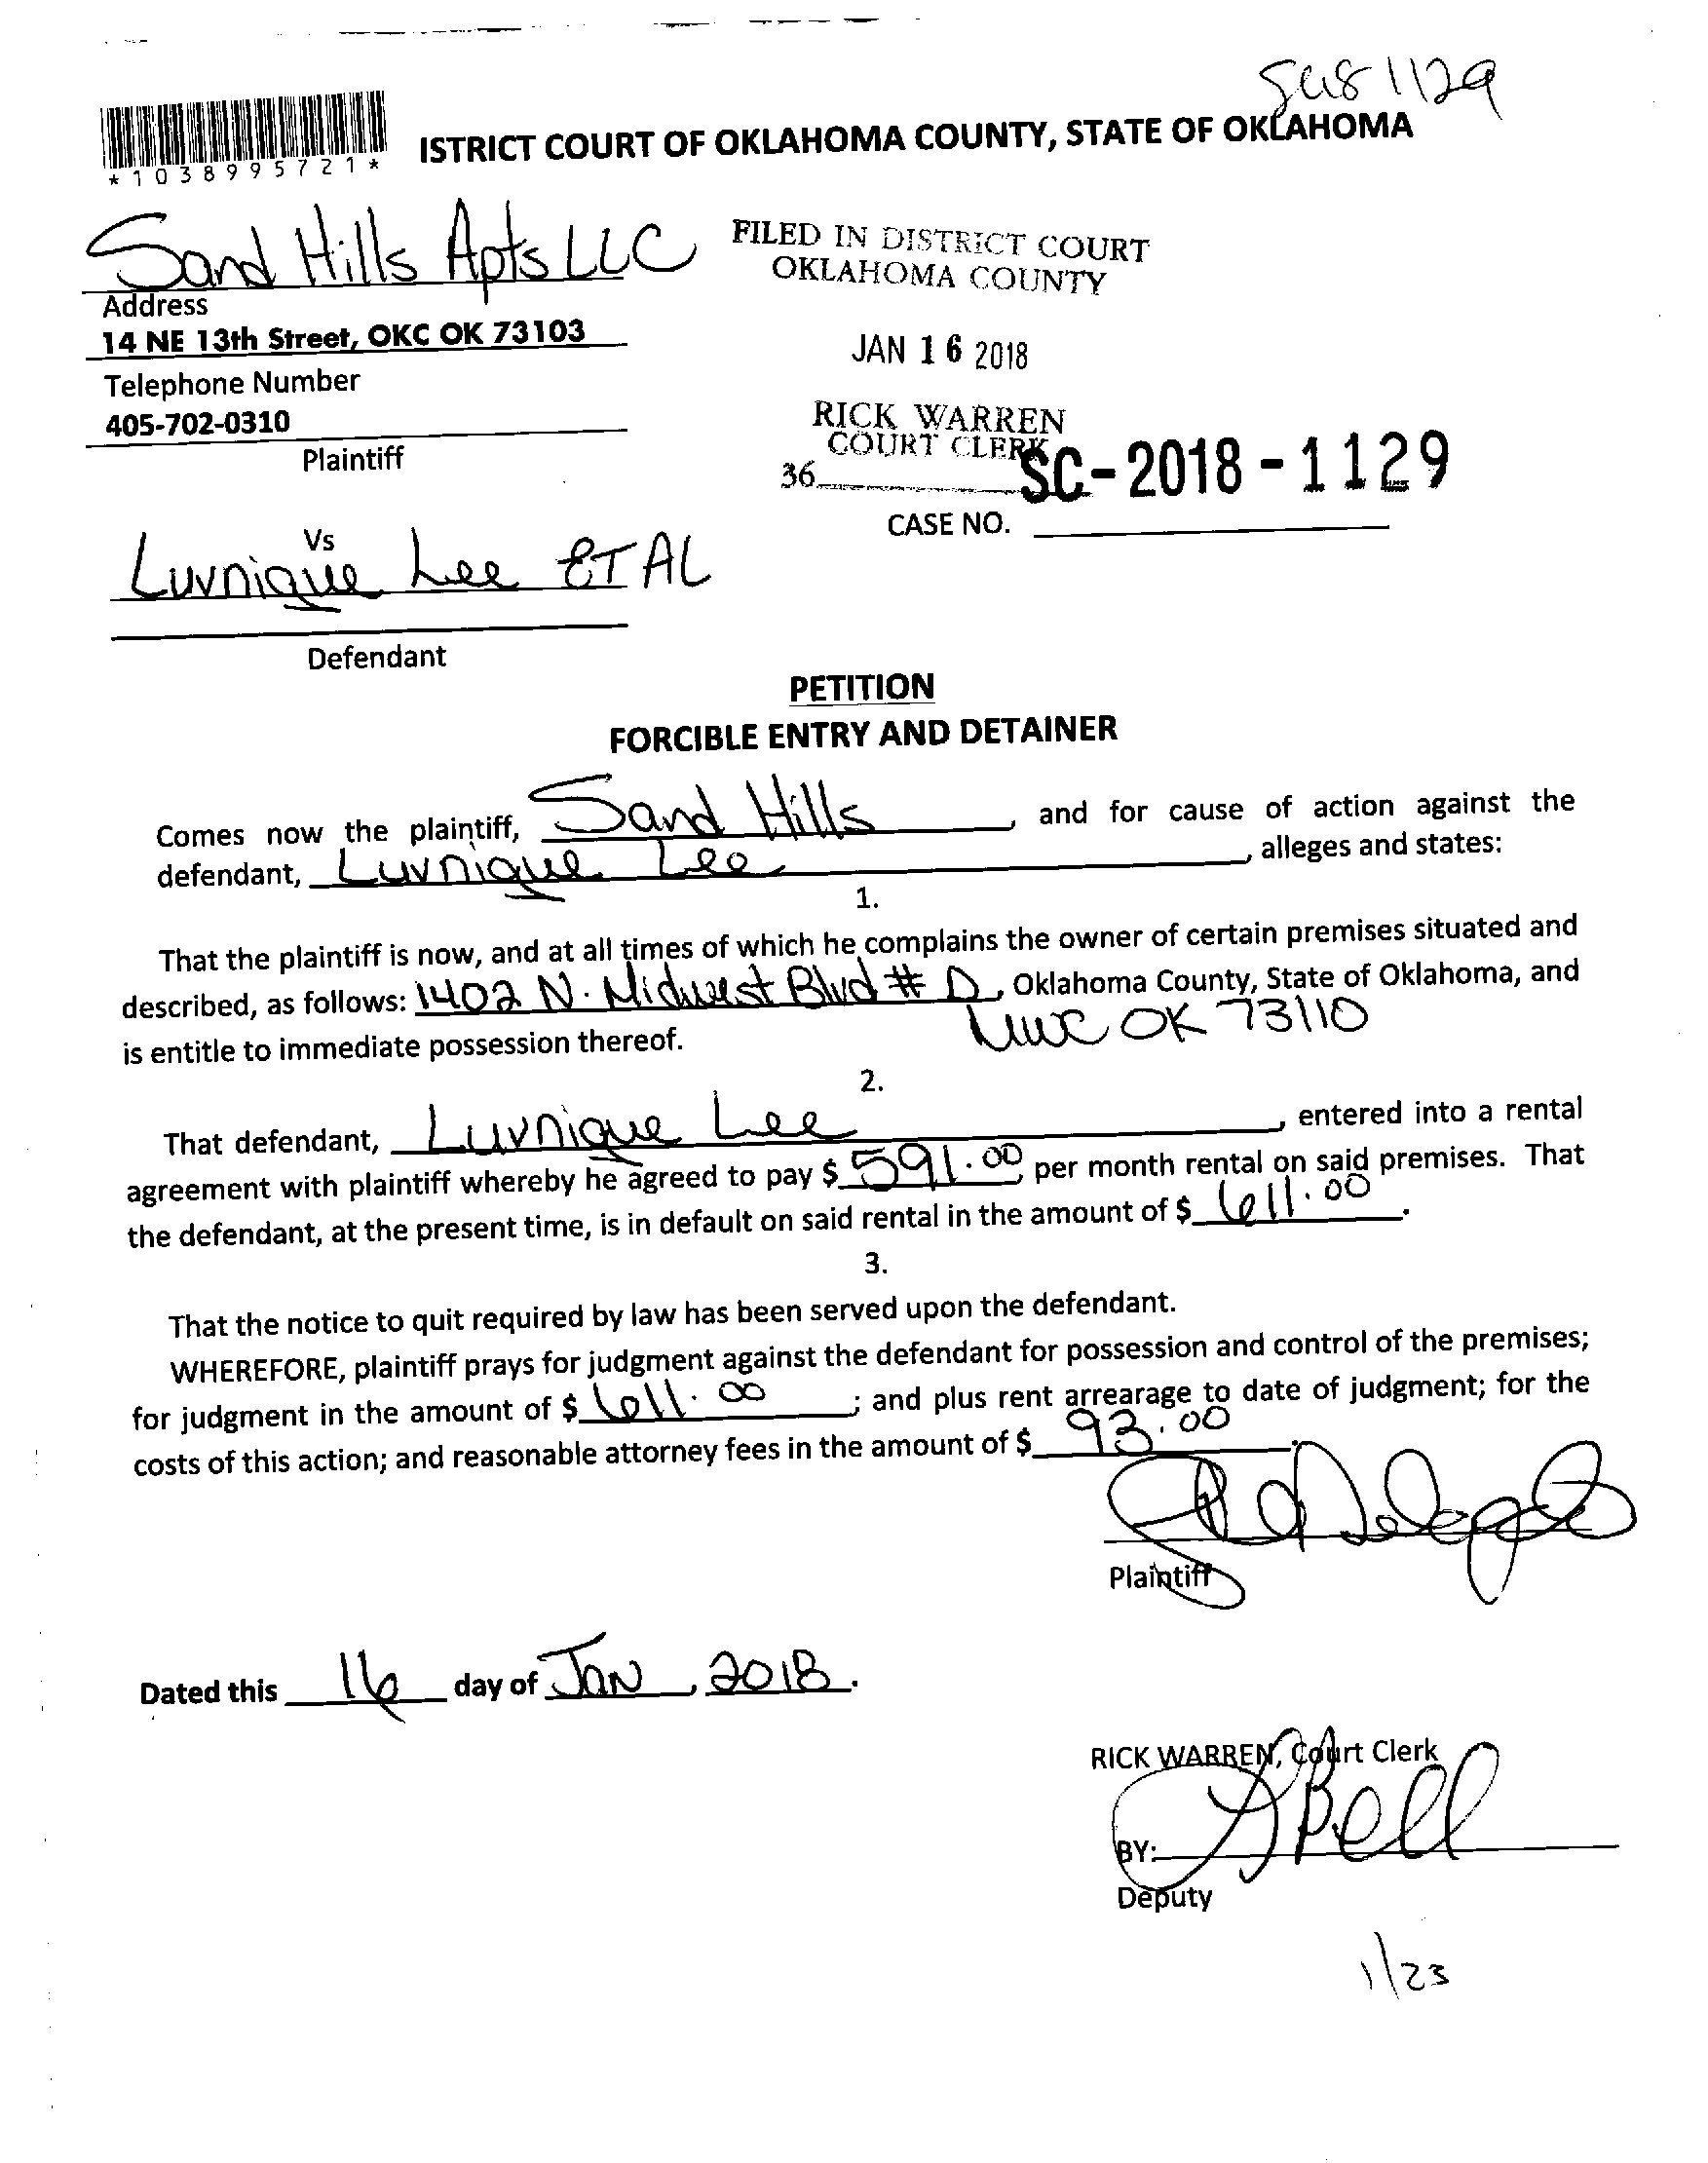 1129
*1038995721*
ISTRICT COURT OF OKLAHOMA COUNTY, STATE OF OKLAHOMA
Sand Hills Apts LLC
FILED IN DISTRICT COURT
OKLAHOMA COUNTY
Address
14 NE 13th Street, OKC OK 73103
JAN 16 2018
Telephone Number
405-702-0310
RICK WARREN
COURT CLERK
Plaintiff
36
SC-2018-1129
CASE NO.
Vs
Luvnique Lee ET AL
Defendant
PETITION
FORCIBLE ENTRY AND DETAINER
Comes now the plaintiff, Sand Hills, and for cause of action against the
defendant, Luvnique Lee, alleges and states:
1.
That the plaintiff is now, and at all times of which he complains the owner of certain premises situated and
described, as follows: 1402 N. Midwest Blvd # D, Oklahoma County, State of Oklahoma, and
MWC OK 73110
is entitle to immediate possession thereof.
2.
That defendant, Luvnique Lee, entered into a rental
agreement with plaintiff whereby he agreed to pay $ 591.00 per month rental on said premises. That
the defendant, at the present time, is in default on said rental in the amount of $ 611.00.
3.
That the notice to quit required by law has been served upon the defendant.
WHEREFORE, plaintiff prays for judgment against the defendant for possession and control of the premises;
for judgment in the amount of $ 611.00; and plus rent arrearage to date of judgment; for the
costs of this action; and reasonable attorney fees in the amount of $ 93.00.
Plaintiff
Dated this 16 day of JAN, 2018.
RICK WARREN, Court Clerk
BY: Bell
Deputy
1/23